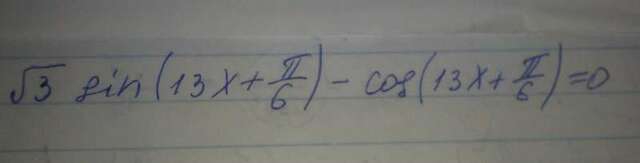 √3 sin(13x+π/6)-cos(13x+π/6)=0